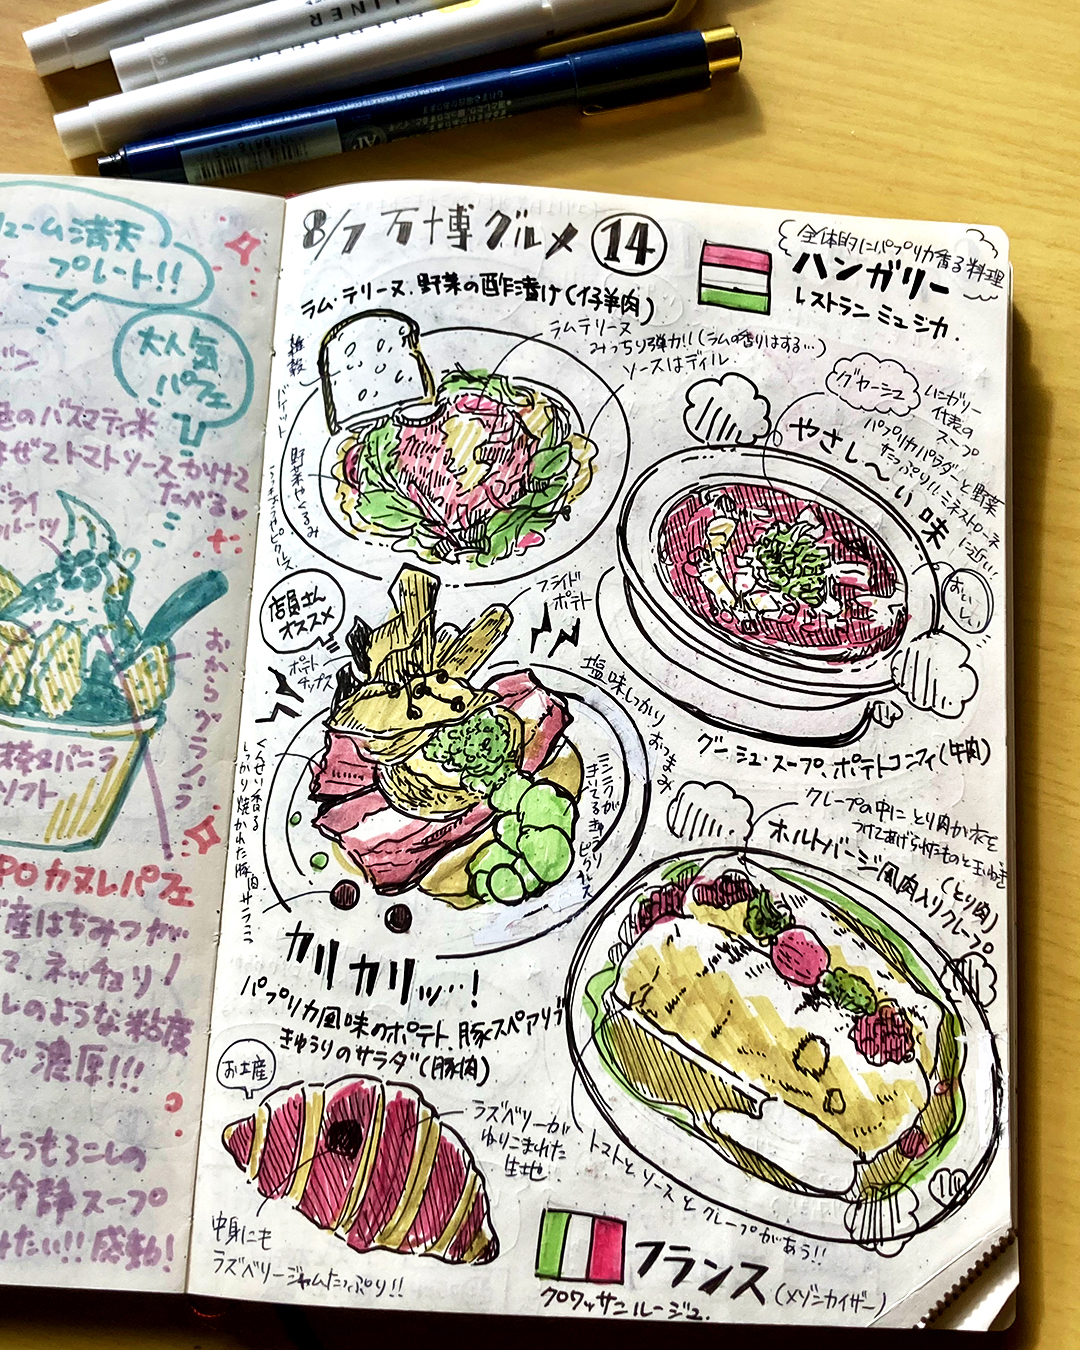 LINER
SAKURA COLOR PRODUCTS CORPORATION
AP
ューム満天
プレート!!
大人気
パフェ
のバスマティ米
ぜてトマトソースかけて
たべる♥
ドライ
ルーツ
おからグラノラ
バニラ
ソフト
カヌレパフェ
産はちみつが
て、ネッチョリ!
しのような粘度
で濃厚!!!
とうもろこしの
冷静スープ
みたい!!感動!
8/7 万博グルメ 14
全体的にパプリカ香る料理
ハンガリー
レストラン ミュジカ.
ラム・テリーヌ、野菜の酢漬け(仔羊肉)
雑穀
バゲット
ラムテリーヌ
みっちり弾力!!(ラムの香りはする…)
ソースはディル
野菜やくるみ
グヤーシュ
ハンガリー
代表の
スープ
パプリカパウダーと野菜
たっぷり!!ミネストローネ
に近い!
やさし〜い味
おいしい
グヤーシュ・スープ、ポテトコンフィ(牛肉)
店員さん
オススメ
フライド
ポテト
ポテト
チップス
塩味しっかり
おつまみ
くんせい香る
しっかり焼かれた豚肉
ニンニクが
きいてるきゅうり
ピクルス
カリカリッ…!
パプリカ風味のポテト、豚スペアリブ
きゅうりのサラダ(豚肉)
クレープの中にとり肉が衣を
つけてあげられたものと玉ねぎ
ホルトバージ風肉入りクレープ
(とり肉)
トマトとソースとクレープがあう!!
お土産
ラズベリーが
ねりこまれた
生地
中身にも
ラズベリージャムたっぷり!!
フランス(メゾンカイザー)
クロワッサンルージュ.